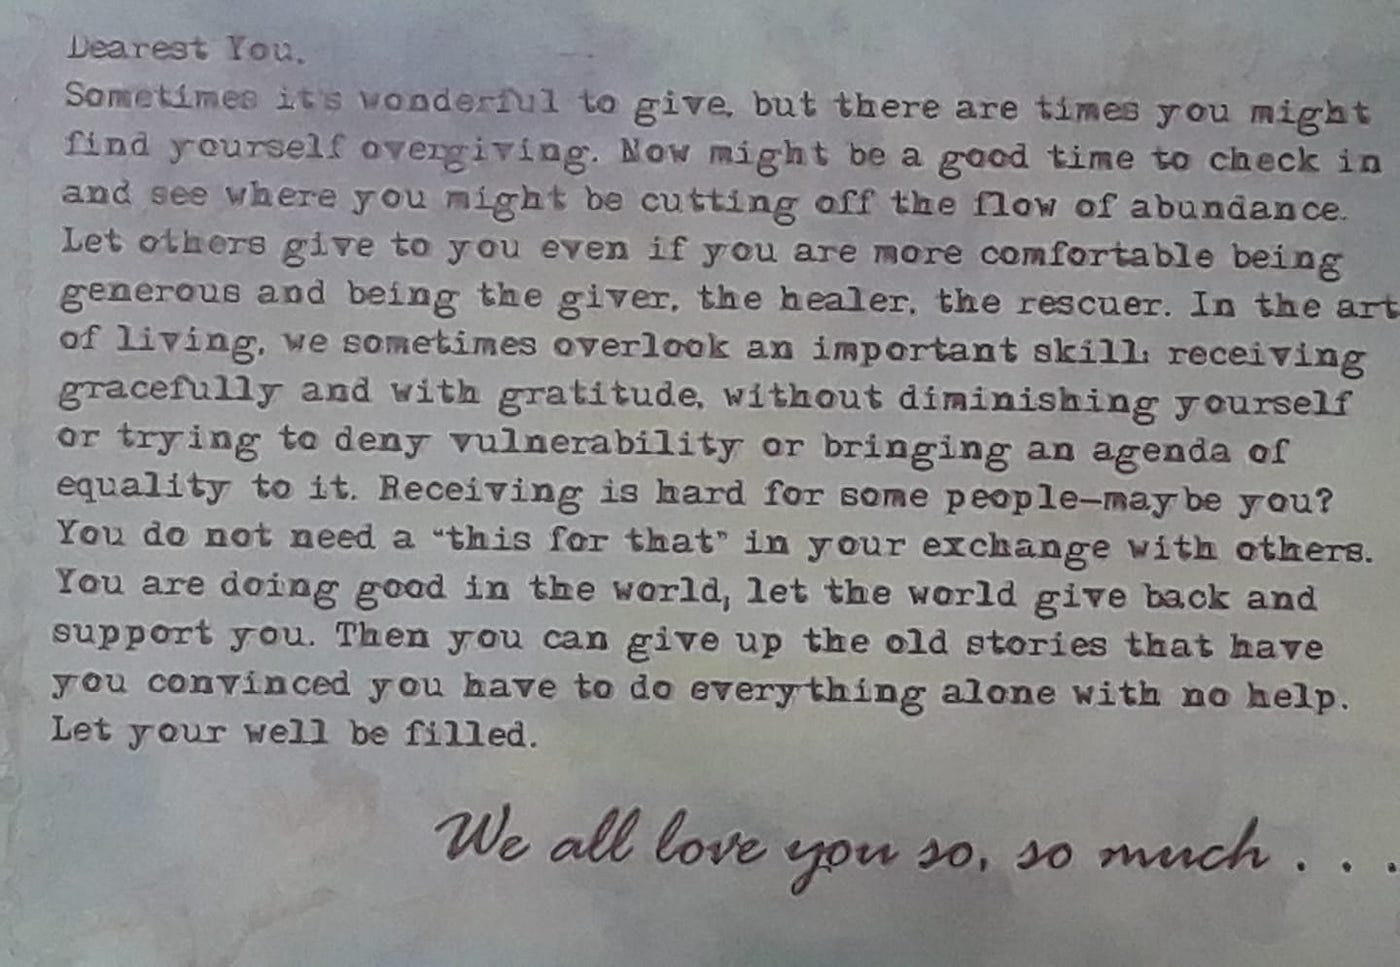 Dearest You,
Sometimes it's wonderful to give, but there are times you might
find yourself overgiving. Now might be a good time to check in
and see where you might be cutting off the flow of abundance.
Let others give to you even if you are more comfortable being
generous and being the giver, the healer, the rescuer. In the art
of living, we sometimes overlook an important skill: receiving
gracefully and with gratitude, without diminishing yourself
or trying to deny vulnerability or bringing an agenda of
equality to it. Receiving is hard for some people—maybe you?
You do not need a “this for that” in your exchange with others.
You are doing good in the world, let the world give back and
support you. Then you can give up the old stories that have
you convinced you have to do everything alone with no help.
Let your well be filled.
We all love you so, so much . . .